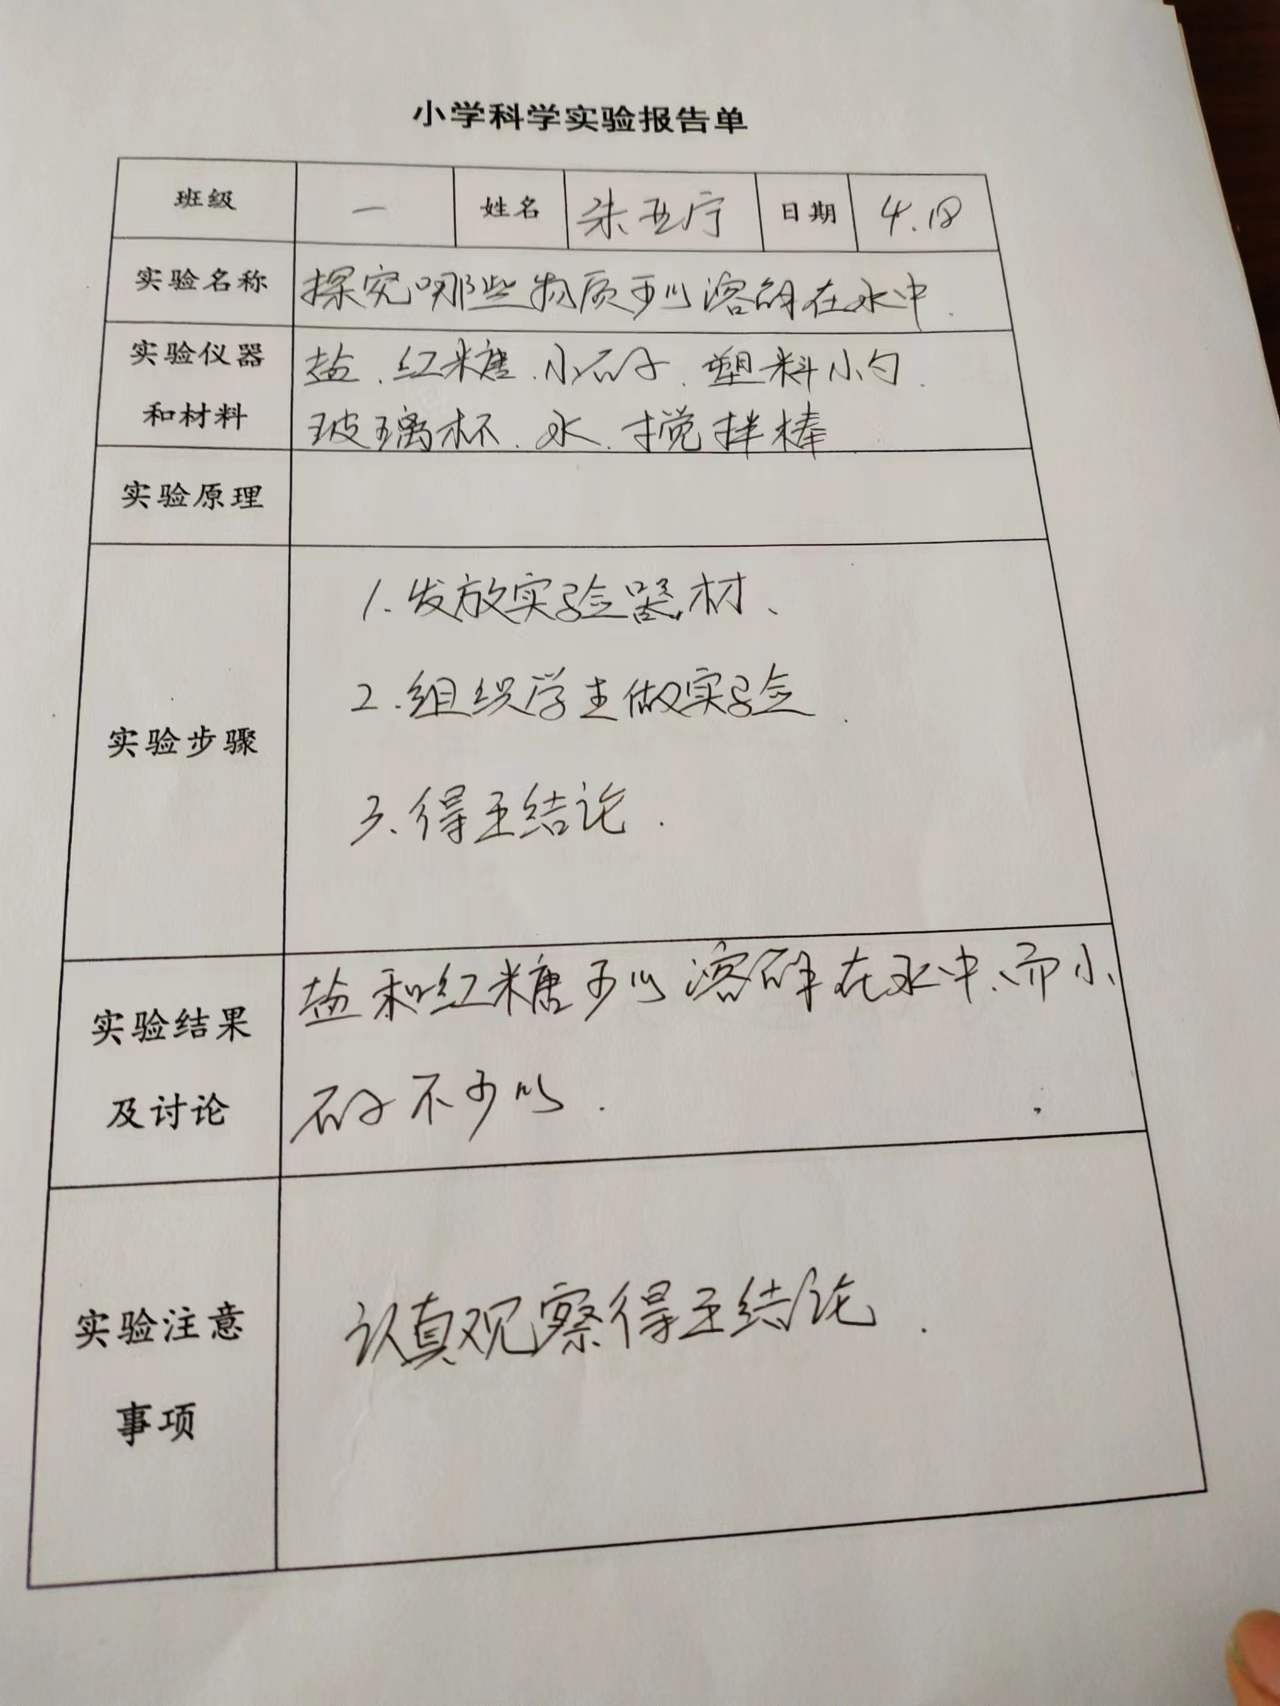 小学科学实验报告单
班级 一 姓名 朱亚宁 日期 4.18
实验名称 探究哪些物质可以溶解在水中.
实验仪器 盐、红糖、小石子、塑料小勺.
和材料 玻璃杯、水、搅拌棒
实验原理
1.发放实验器材、
2.组织学生做实验.
实验步骤
3.得出结论.
盐和红糖可以溶解在水中、而小
实验结果
石子不可以.
及讨论
认真观察得出结论.
实验注意
事项